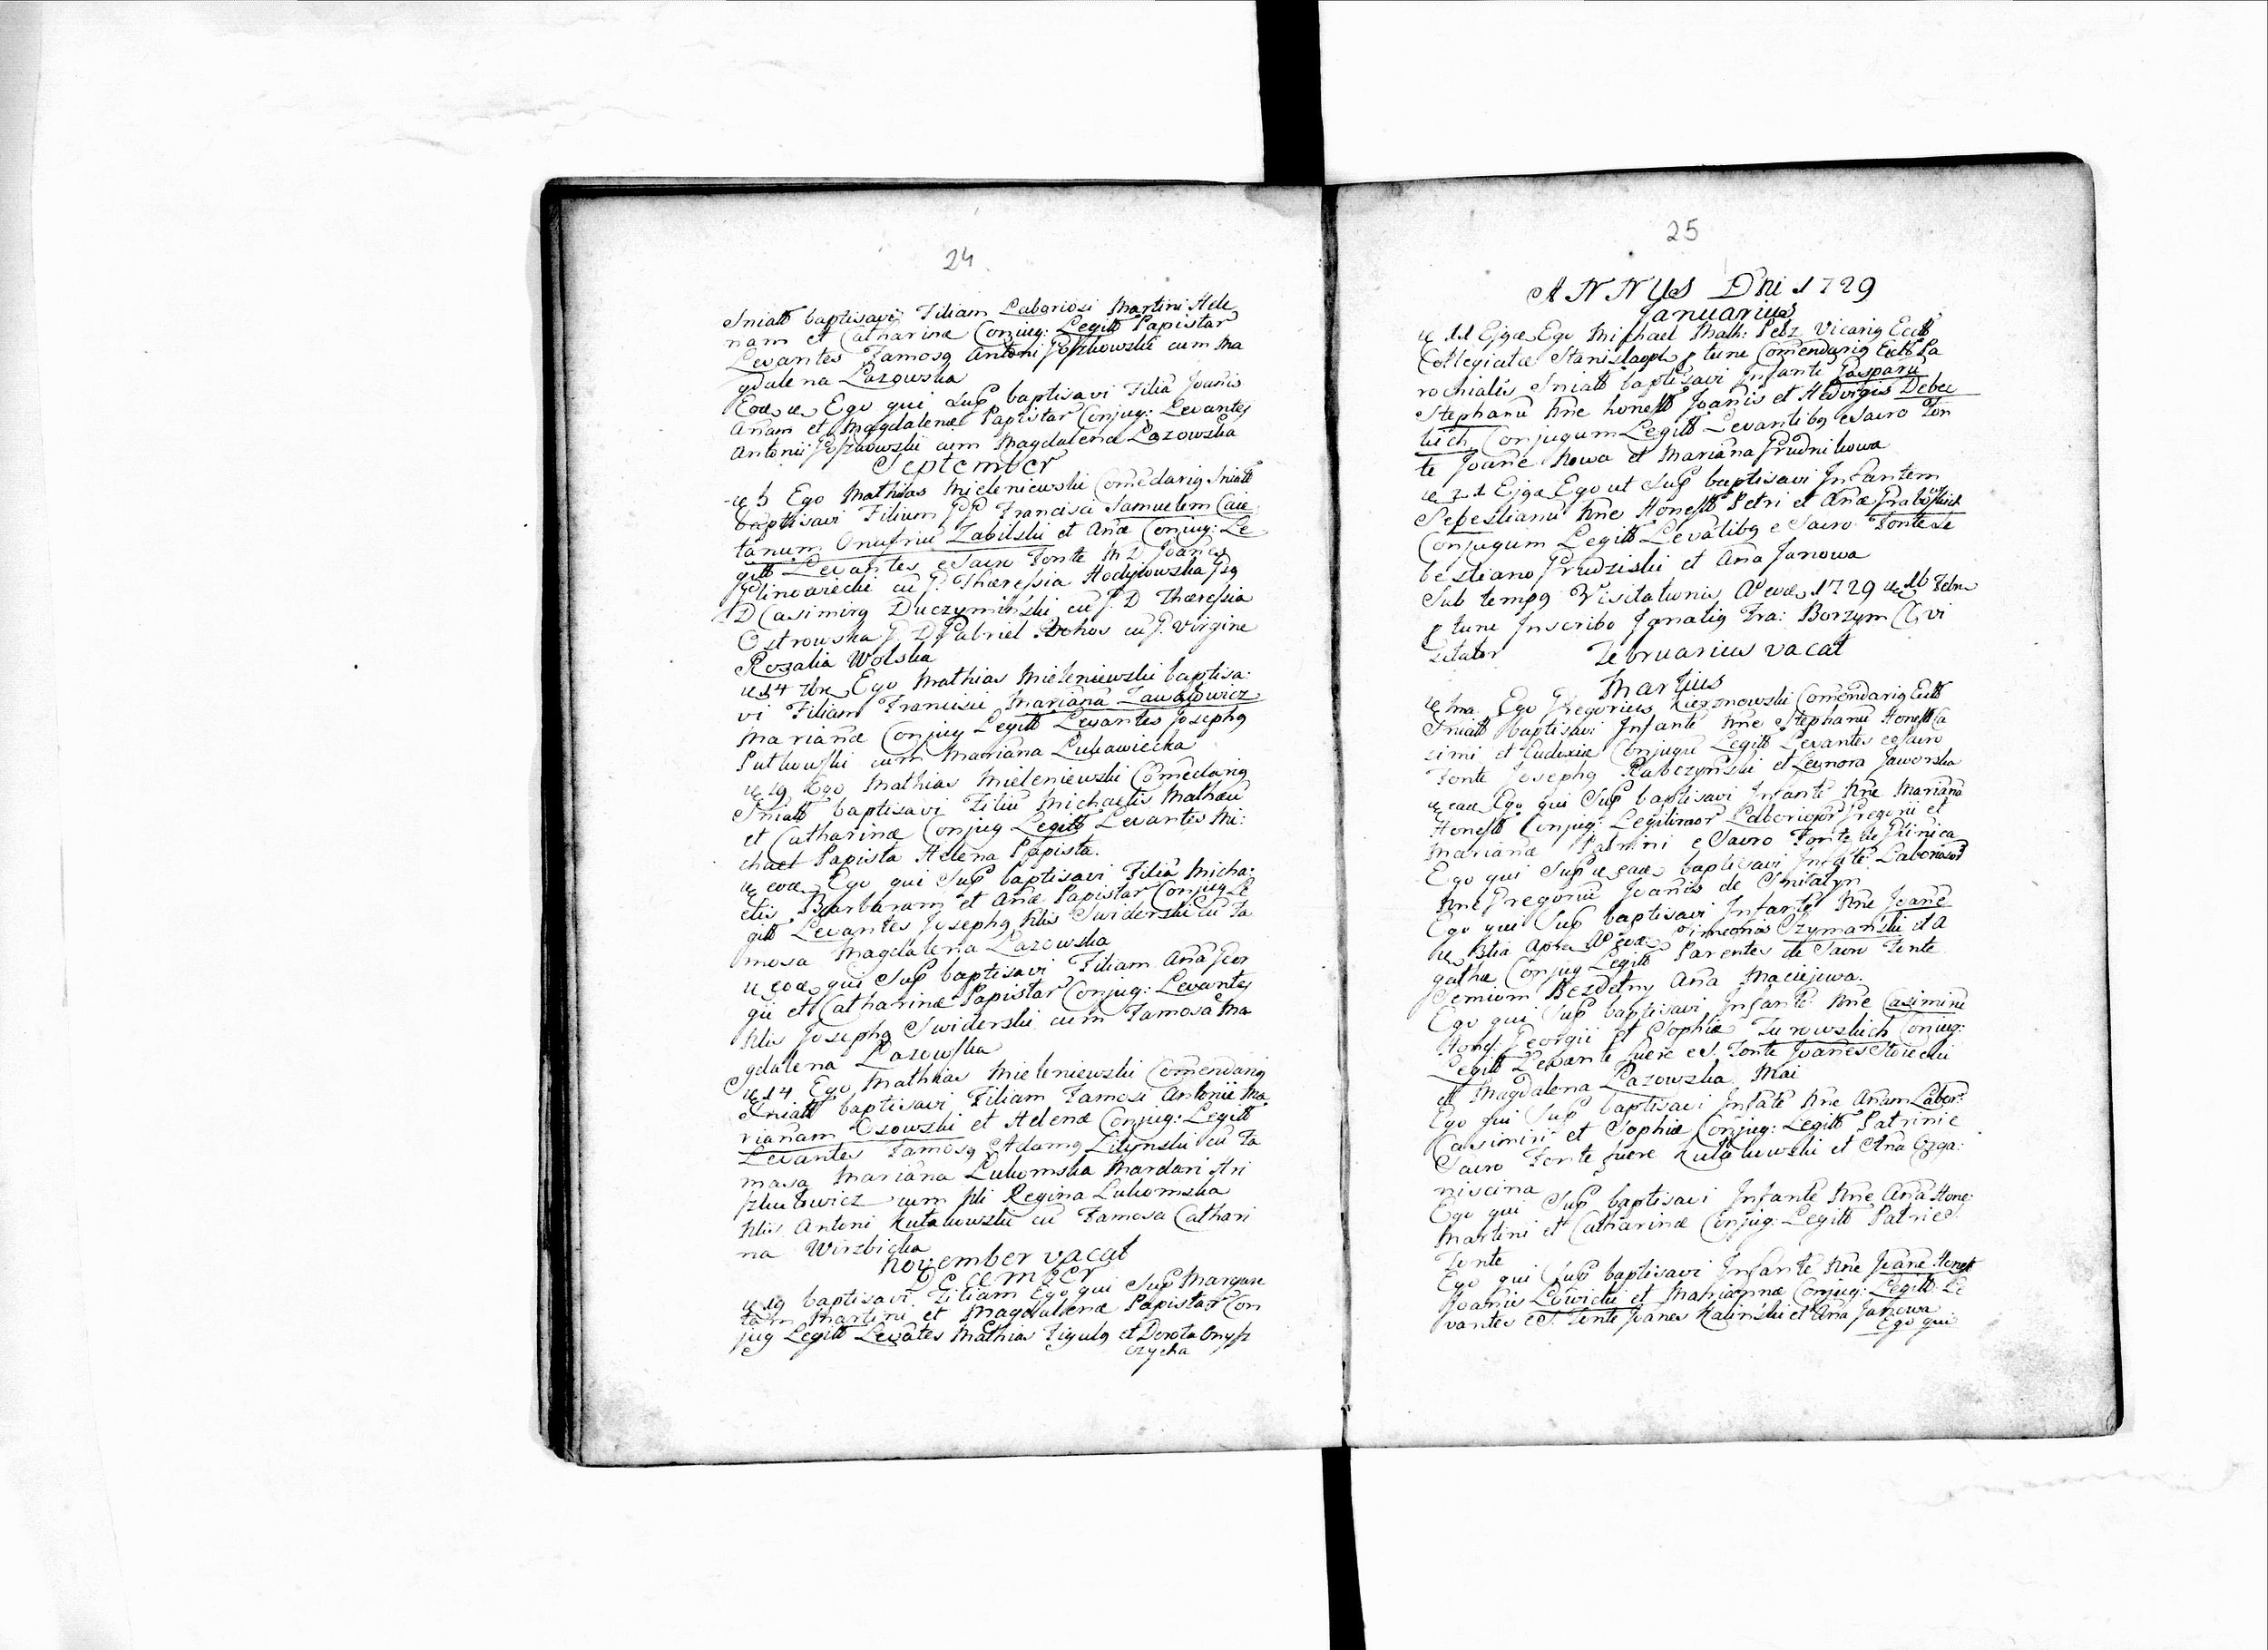 24
Sniatt baptisavi Filiam Laboriosi Martini Hele
nam et Catharinæ Conjug: Legitt Papistar
Levantes Famosq Antoni Goszkowski cum Ma
gdalena Lazowska
Eod Ego qui Sup baptisavi Filia Joanis
Anam et Magdalenæ Papistar Conjug: Levantes
Antonii cum Magdalena Lazowska
September
5 Ego Mathias Mieleniewski Comēdariq Sniatt
baptisavi Filium Francisci Samuelem Caie
tanum Onufriu Zabilski et Anæ Conjug: Le
gitt Levantes e Sacro Fonte M D Joanes
cu Thæressia Hodyiowska
D Casimirq Duczyminski cu D Thæressia
Ostrowska D Gabriel cu Virgine
Rozalia Wolska
14 7br Ego Mathias Mieleniewski baptisa:
vi Filiam Francisci Mariana Zawadowicz
Marianæ Conjug Legitt Levantes Josephq
Putkowski cum Mariana Lukawiecka
19 Ego Mathias Mieleniewski Comēdariq
Sniatt baptisavi Filiu Michaelis Mathæu
et Catharinæ Conjug Legitt Levantes Mi:
chael Papista Helena Papista.
eod Ego qui Sup baptisavi Filia Micha:
elis Barbaram et Anæ Papistar Conjug Le
gitt Levantes Josephq Swiderski cu Fa
mosa Magdalena Lazowska
eod qui Sup baptisavi Filiam Ana Geor
gii et Catharinæ Papistar Conjug: Levantes
Josephq Swiderski cum Famosa Ma
gdalena Lazowska
14 Ego Mathias Mieleniewski Comendariq
Sniatt baptisavi Filiam Famosi Antonii Ma
rianam Osowski et Helenæ Conjug: Legitt
Levantes Famosq Adamq Litynski cu Fa
mosa Mariana Lukomska Mardari Kri
sztutowicz cum Regina Lukomska
Antoni Kutakowski cu Famosa Cathari
na Wirzbicka
November vacat
December
19 baptisavi Filiam Ego qui Sup Margare
tam Martini et Magdalenæ Papistar Con
jug Legitt Levates Mathias Figulq et Dorota Onysz
czycha
25
ANNUS Dni 1729
Januarius
11 Ejgæ Ego Michael Math: Pelz Vicariq Eccll
Collegiatæ Stanislaop p tunc Comendariq Eccll Pa
rochialis Sniatt baptisavi Infante Gasparu
Stephanu Nne honestt Joanis et Hedvigis Debec
kich Conjugum Legitt Levantibq e Sacro Fon
te Joane Nowa et Mariana Grudnikowa
21 Ejgæ Ego ut Sup baptisavi Infantem
Sebestianu Nne Honestt Petri et Anæ
Conjugum Legitt Levatibq e Sacro Fonte Se
bestiano Grudziski et Ana Janowa
Sub tempq Visitationis Aº eod 1729 16 Febru
p tunc Inscribo Ignatiq Fra: Borzym vi
sitator
Februarius vacat
Martius
Ego Gregorius Kieznowski Comendariq Eccll
Sniatt baptisavi Infante Nne Stephanu Honestt Ca
simi et Eudoxiæ Conjugu Legitt Levantes e Sacro
Fonte Josephq Rabczynski et Leynora Jaworska
ead Ego qui Sup baptisavi Infante Nne Mariana
Honestt Conjug: Legitimor Laborior Gregorii et
Marianæ Patrini e Sacro Fonte
Ego qui Sup ead baptisavi Infate Laborios
Nne Gregoriu Joanis de Sniatyn
Ego qui Sup baptisavi Infante Nne Joane
Simeonis Szymanski et A
gathæ Conjug Legitt Parentes de Sacro Fonte
Semiom Bezdetny Ana Maciejowa.
Ego qui Sup baptisavi Infante Nne Casimiru
Honest: Georgii et Sophiæ Turowskich Conjug:
Legitt Levante fuere e S. Fonte Joanes
et Magdalena Lazowska Mai
Ego qui Sup baptisavi Infate Nne Anam Labor:
Casimiri et Sophiæ Conjug: Legitt Patrini e
Sacro Fonte fuere Kutakowski et Ana Orga:
niscina
Ego qui Sup baptisavi Infante Nne Ana Hone:
Martini et Catharinæ Conjug: Legitt Patri e S.
Fonte
Ego qui Sup baptisavi Infante Nne Joane Honest
Joanis Lowicki et Mariannæ Conjug: Legitt Le
vantes e S. Fonte Joanes Kalinski et Ana Janowa
Ego qui